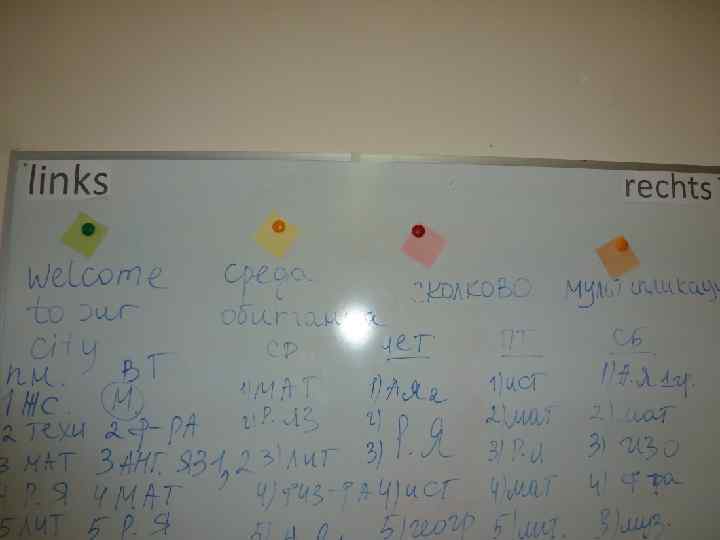 links rechts
welcome среда сколково мультипликация
to our обитания
city СР чет ПТ СБ
пн. ВТ
1 ЖС. М. 1) МАТ 1) А.Яз 1) ист 1) А.Я 1 гр.
2 техн 2 ф-РА 2) Р.ЯЗ 2) 2) мат 2) мат
3 МАТ 3 АНГ. ЯЗ 1,2 3) лит 3) Р.Я 3) Р.Я 3) ИЗО
4 Р.Я 4 МАТ 4) физ-РА 4) ист 4) мат 4) ф-ра
5 ЛИТ 5 Р.Я 5) 5) геогр 5) лит. 5) муз.